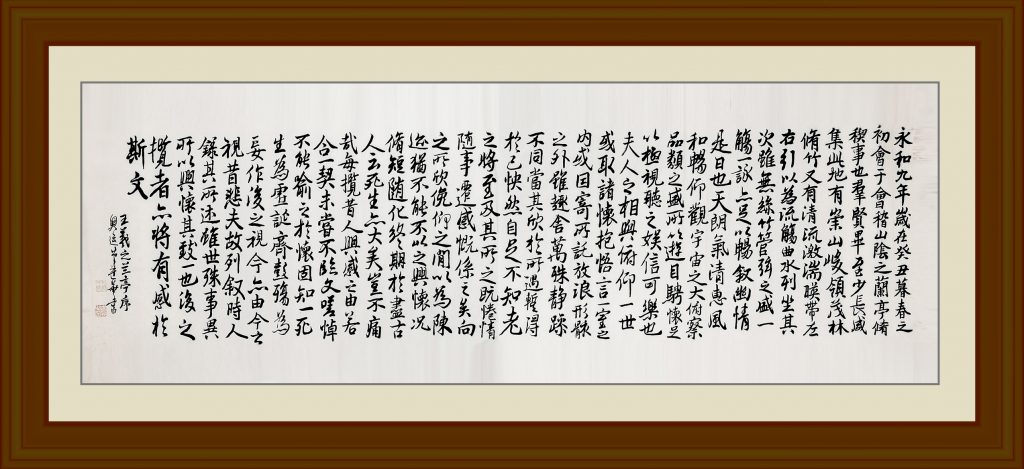 永和九年歲在癸丑暮春之
初會于會稽山陰之蘭亭脩
稧事也群賢畢至少長咸
集此地有崇山峻領茂林
脩竹又有清流激湍暎帶左
右引以為流觴曲水列坐其
次雖無絲竹管弦之盛一
觴一詠亦足以暢叙幽情
是日也天朗氣清惠風
和暢仰觀宇宙之大俯察
品類之盛所以遊目騁懷足
以極視聽之娛信可樂也
夫人之相與俯仰一世
或取諸懷抱悟言一室之
内或因寄所託放浪形骸
之外雖趣舍萬殊静躁
不同當其欣於所遇蹔得
於己怏然自足不知老
之將至及其所之既惓情
隨事遷感慨係之矣向
之所欣俛仰之間以為陳
迹猶不能不以之興懷況
脩短随化終期於盡古
人云死生亦大矣豈不痛
哉每攬昔人興感之由若
合一契未嘗不臨文嗟悼
不能喻之於懷固知一死
生為虛誕齊彭殤為
妄作後之視今亦由今之
視昔悲夫故列叙時人
錄其所述雖世殊事異
所以興懷其致一也後之
攬者亦將有感於
斯文
王羲之蘭亭序